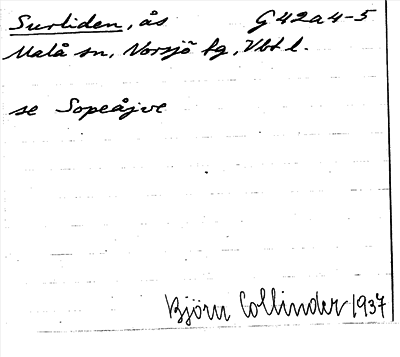 Surliden, ås G 42a4-5
Malå sn, Norsjö tg, Vbt l.
se Sopeåjve
Björn Collinder 1937